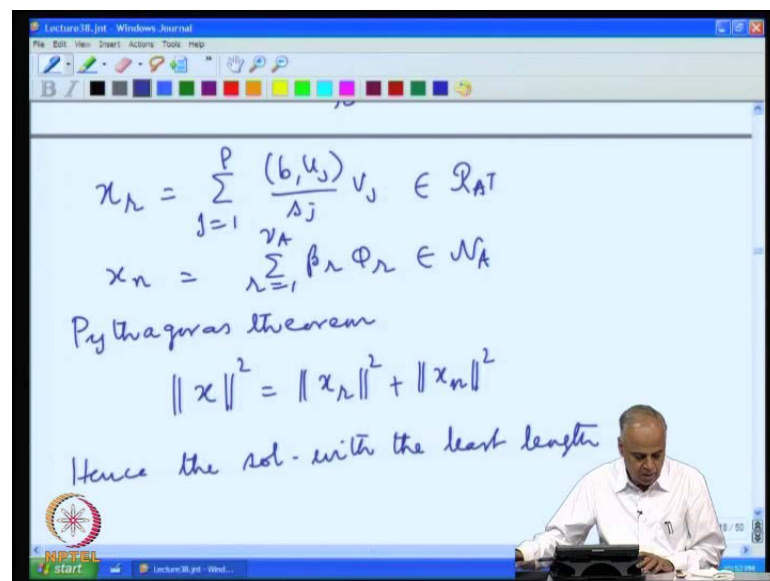 Lecture38.jnt - Windows Journal
File Edit View Insert Actions Tools Help
B I
x_r = \sum_{j=1}^{ρ} \frac{(b, u_j)}{s_j} v_j ∈ R_{A^T}
x_n = \sum_{r=1}^{ν_A} β_r φ_r ∈ N_A
Pythagoras theorem
‖x‖^2 = ‖x_r‖^2 + ‖x_n‖^2
Hence the sol. with the least length
18 / 50
NPTEL
start
Lecture38.jnt - Wind...